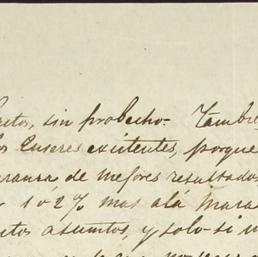 sin probecho- Tambie
os Enseres existentes, porque
ranza de mejores resultados
1 ó 2 % mas alá Mara
tos asuntos, y solo-si u